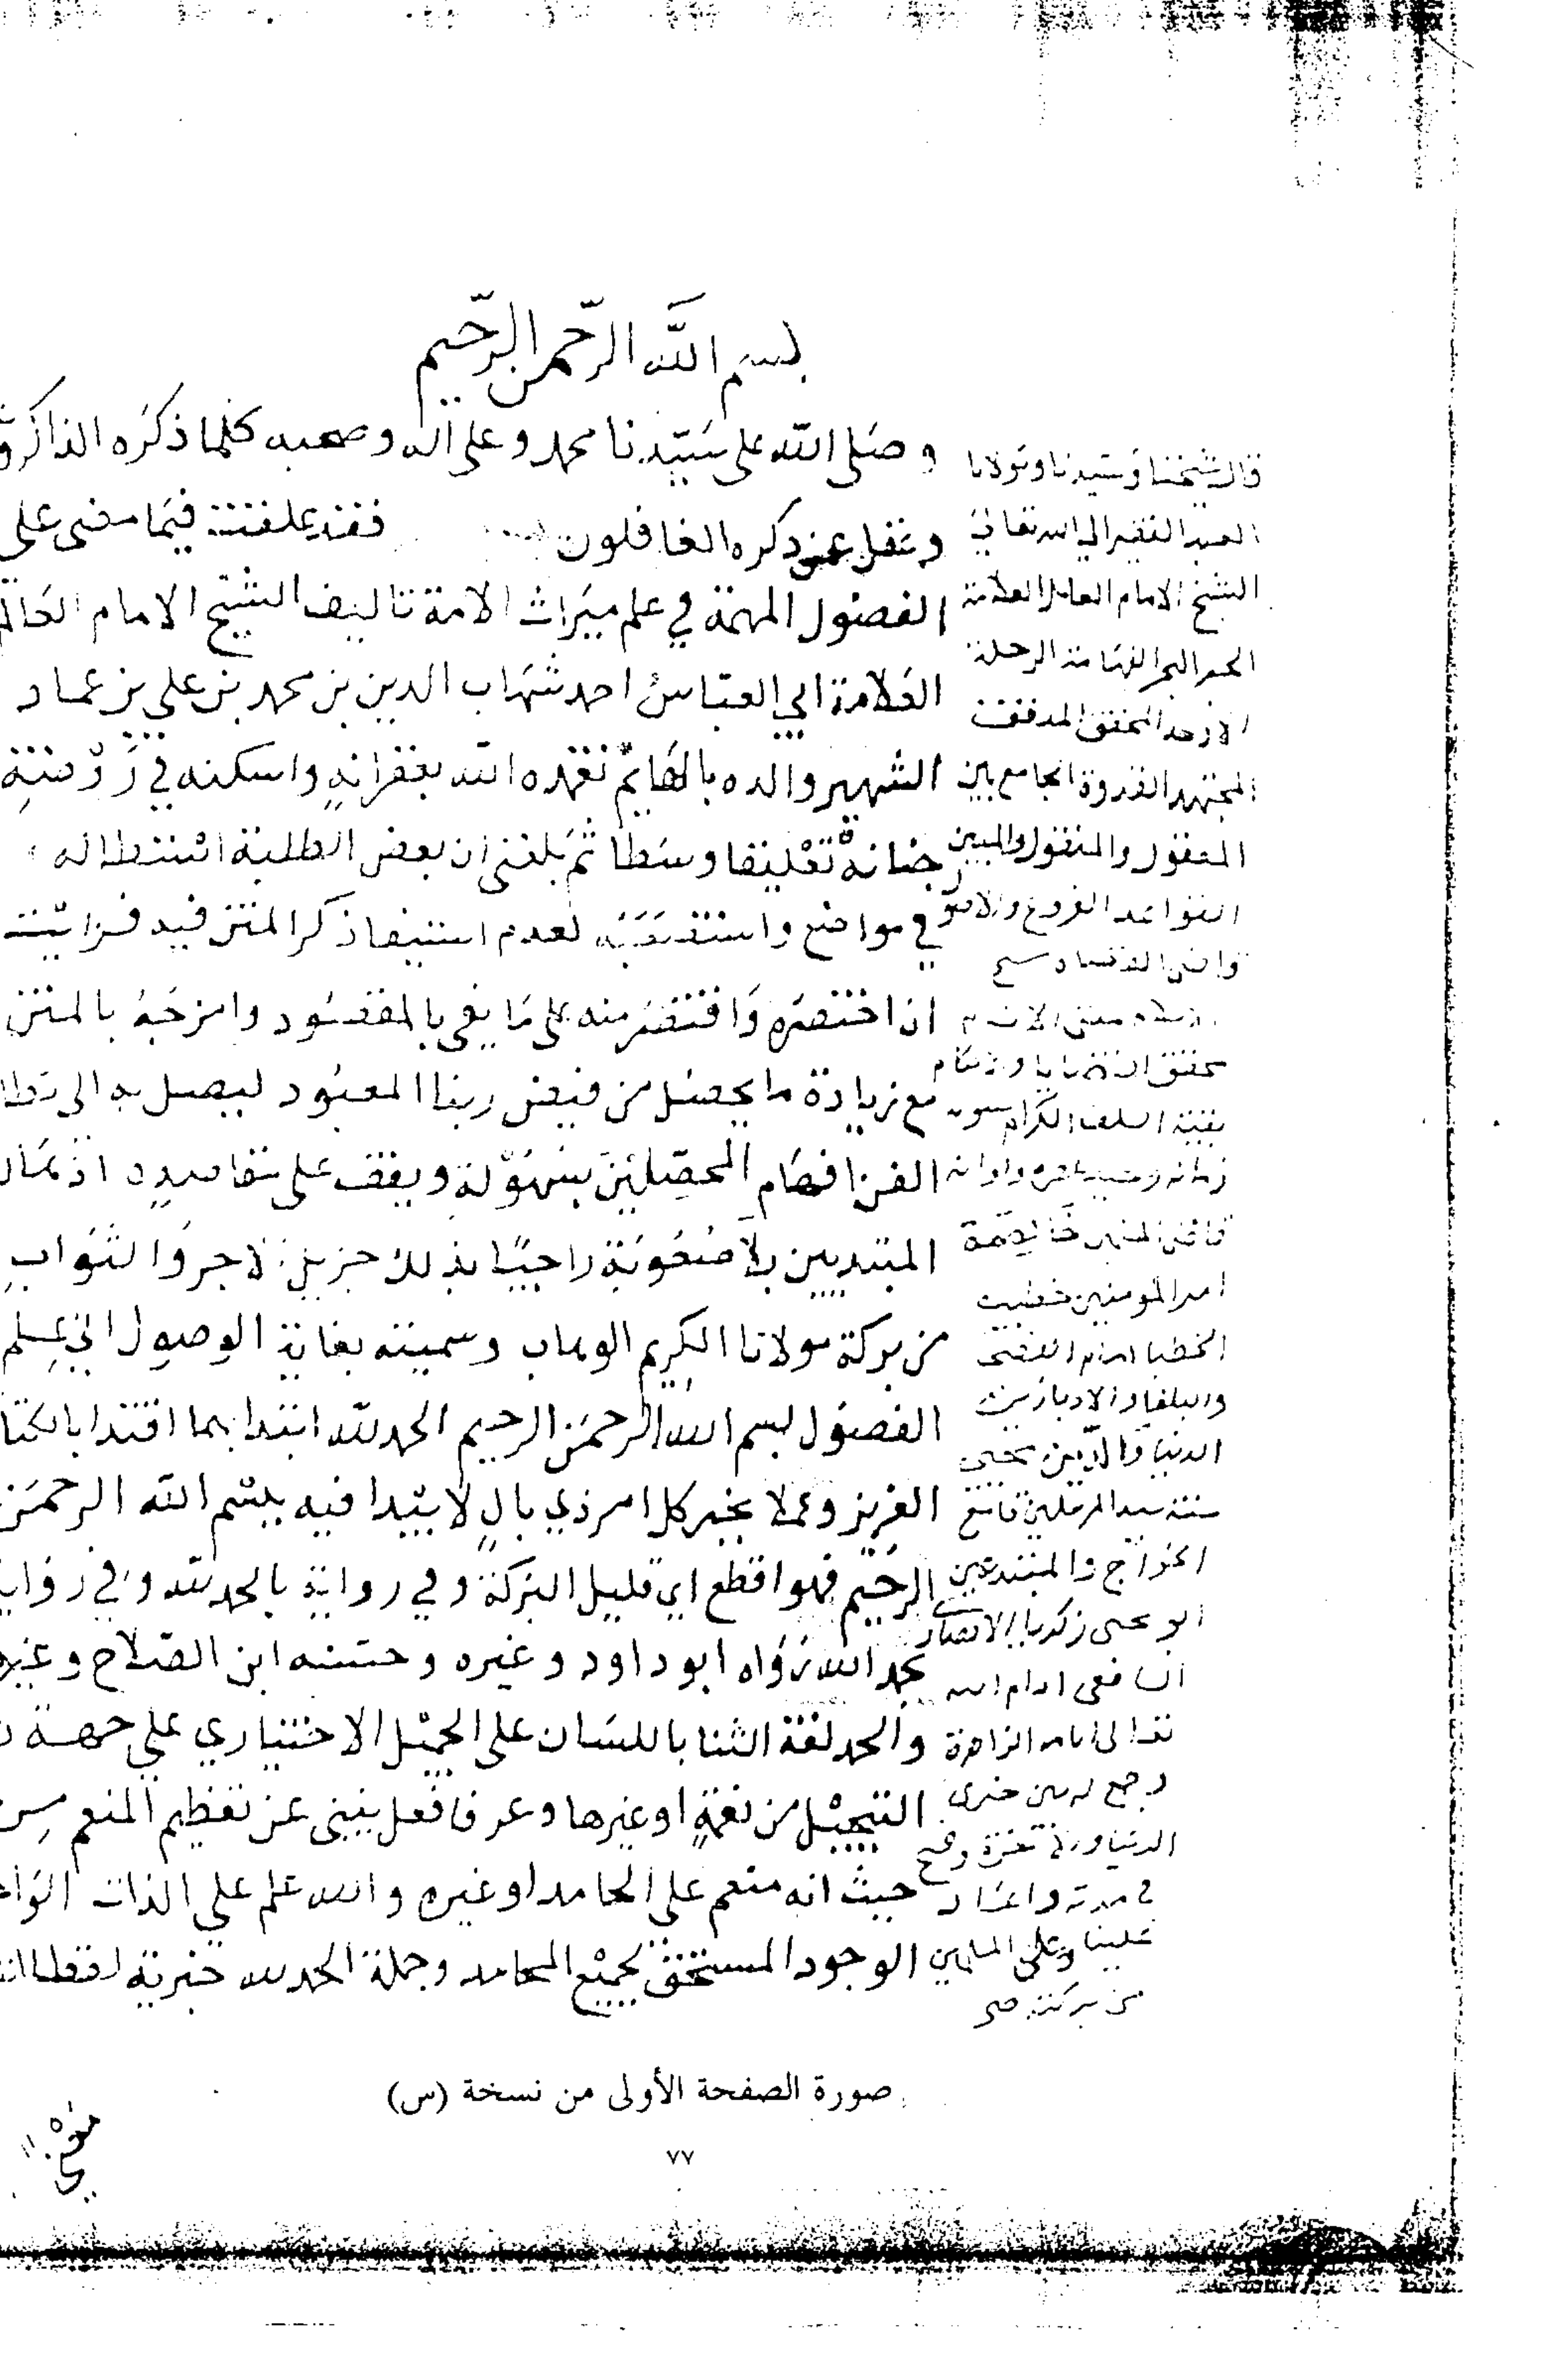 بسم الله الرحمن الرحيم
وصلى الله على سيدنا محمد وعلى اله وصحبه كلما ذكره
وغفل عن ذكره الغافلون فقد علقت فيما مضى على
الفصول المهمة في علم ميراث الامة تاليف الشيخ الامام
العلامة ابي العباس احمد شهاب الدين بن محمد بن علي بن عماد
الشهير والده بالهايم تغمده الله بغفرانه واسكنه في
جنانه تعليقا وسطا ثم بلغني ان بعض الطلبة استطاله
في مواضع واستصعبه لعدم استيفا ذكر المتن فيه فرايت
ان اختصره واقتصر منه على ما يفي بالمقصود وامزجه بالمتن
مع زيادة ما يحصل من فيض ربنا المعبود ليصل به الى
الفن افهام المحصلين بسهولة ويقف على مقاصده
المبتديين بلا صعوبة راجيا بذلك جزيل الاجر والثواب
من بركة مولانا الكريم الوهاب وسميته بغاية الوصول الي علم
الفصول بسم الله الرحمن الرحيم الحمد لله ابتدا بهما اقتدا
العزيز وعملا بخبر كل امر ذي بال لا يبدا فيه ببسم الله الرحمن
الرحيم فهو اقطع اي قليل البركة وفي رواية بالحمد لله وفي
بحمد الله رواه ابو داود وغيره وحسنه ابن الصلاح وغيره
والحمد لغة الثنا باللسان على الجميل الاختياري علي جهة
التبجيل من نعمة او غيرها وعرفا فعل ينبئ عن تعظيم المنعم من
حيث انه منعم على الحامد او غيره والله علم علي الذات
الوجود المستحق لجميع المحامد وجملة الحمد لله خبرية لفظا
قال شيخنا وسيدنا ومولانا
العبد الفقير الي الله تعالى
الشيخ الامام العالم العلامة
الحبر البحر الفهامة الرحلة
الاوحد المحقق المدقق
المجتهد القدوة الجامع بين
المعقول والمنقول والمبين
القواعد الفروع والاصول
قاضي القضاة شيخ
الاسلام مفتي الانام
محقق القضايا والاحكام
بقية السلف الكرام
زمانه
امير المومنين خطيب
الخطبا امام الفصحا
والبلغا والادبا زين
الدنيا والدين محيي
سنة سيد المرسلين قامع
الخوارج والمبتدعين
ابو يحيى زكريا الانصاري
الشافعي ادام الله
تعالى ايامه الزاهرة
وجمع له بين خيري
الدنيا والاخرة وفسح
في مدته واعاد
علينا وعلى المسلمين
من بركته
صورة الصفحة الأولى من نسخة (س)
٧٧